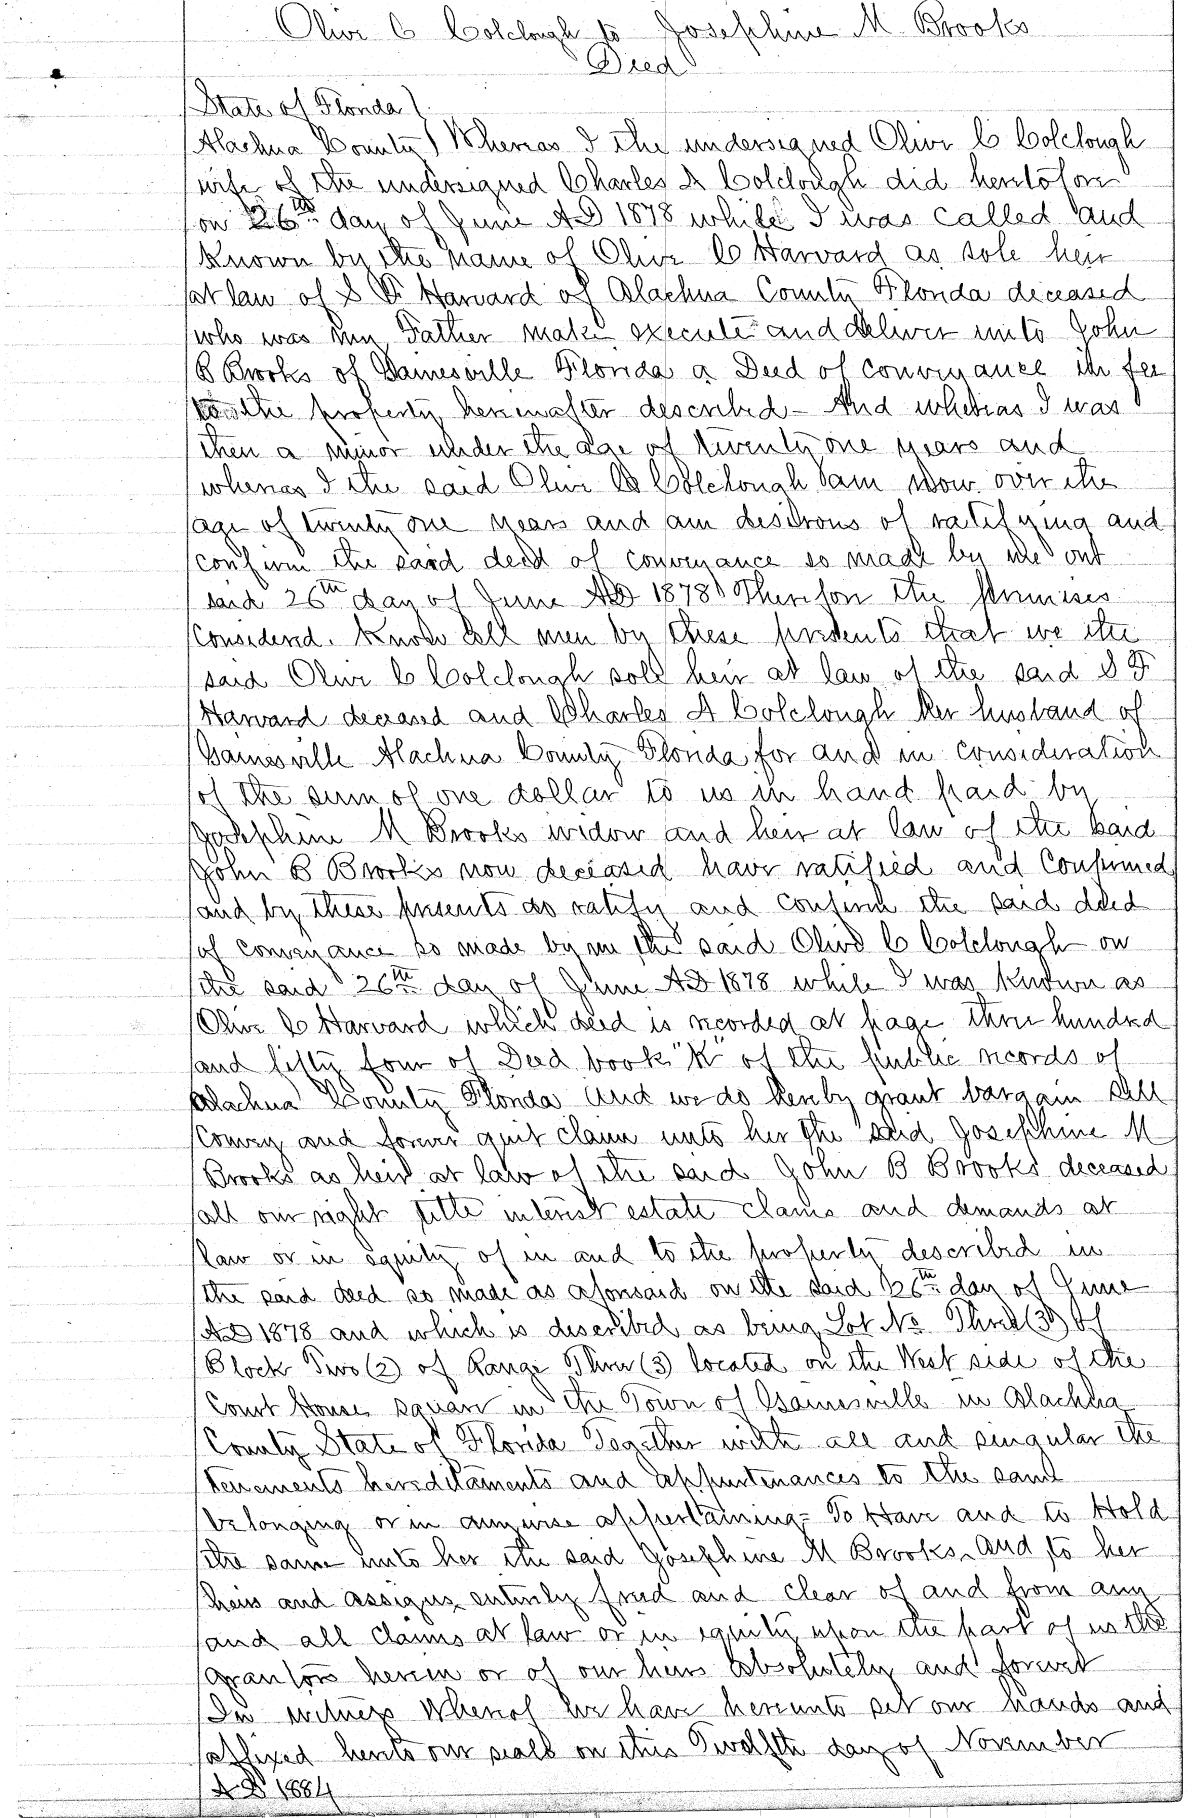 Olive C Colclough to Josephine M Brooks
Deed
State of Florida }
Alachua County } Whereas I the undersigned Olive C Colclough
wife of the undersigned Charles A Colclough did heretofore
on 26th day of June AD 1878 while I was called and
Known by the name of Olive C Harvard as sole heir
at law of S F Harvard of Alachua County Florida deceased
who was my Father make execute and deliver unto John
B Brooks of Gainesville Florida a Deed of conveyance in fee
to the property hereinafter described - And whereas I was
then a minor under the age of twenty one years and
whereas I the said Olive C Colclough am now over the
age of twenty one years and am desirous of ratifying and
confirm the said deed of conveyance so made by me on
said 26th day of June AD 1878 Therefore the premises
considered. Know all men by these presents that we the
said Olive C Colclough sole heir at law of the said S F
Harvard deceased and Charles A Colclough her husband of
Gainesville Alachua County Florida for and in consideration
of the sum of one dollar to us in hand paid by
Josephine M Brooks widow and heir at law of the said
John B Brooks now deceased have ratified and Confirmed
and by these presents do ratify and confirm the said deed
of conveyance so made by me the said Olive C Colclough on
the said 26th day of June AD 1878 while I was known as
Olive C Harvard which deed is recorded at page three hundred
and fifty four of Deed book "K" of the public records of
Alachua County Florida And we do hereby grant bargain sell
Convey and forever quit claim unto her the said Josephine M
Brooks as heir at law of the said John B Brooks deceased
all our right title interest estate claims and demands at
law or in equity of in and to the property described in
the said deed so made as aforesaid on the said 26th day of June
AD 1878 and which is described as being Lot No Three (3) of
Block Two (2) of Range Three (3) located on the West side of the
Court House square in the Town of Gainesville in Alachua
County State of Florida Together with all and singular the
tenements hereditaments and appurtenances to the same
belonging or in anywise appertaining - To Have and to Hold
the same unto her the said Josephine M Brooks and to her
heirs and assigns entirely freed and clear of and from any
and all claims at law or in equity upon the part of us the
grantors herein or of our heirs absolutely and forever
In witness Whereof we have hereunto set our hands and
affixed hereto our seals on this Twelfth day of November
AD 1884